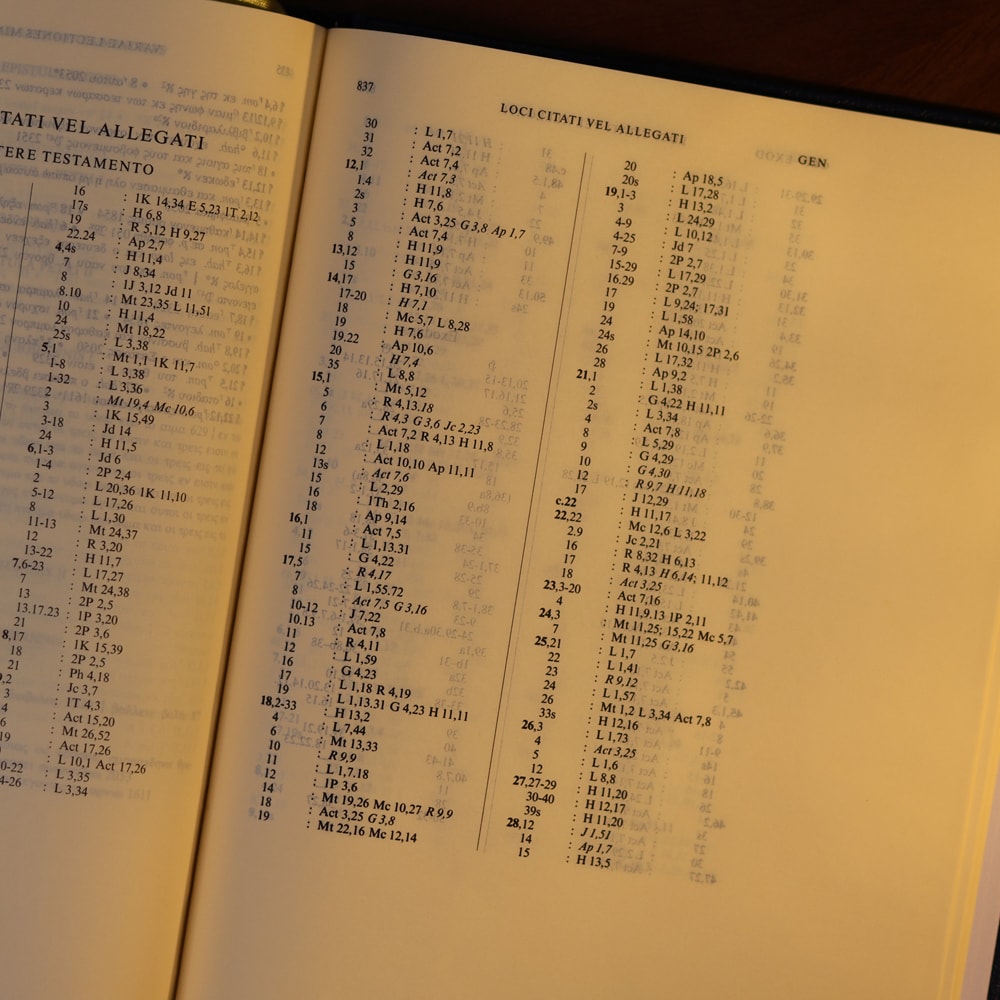 TATI VEL ALLEGATI
TERE TESTAMENTO
16 : 1K 14,34 E 5,23 1T 2,12
17s : H 6,8
19 : R 5,12 H 9,27
22.24 : Ap 2,7
4,4s : H 11,4
7 : J 8,34
8 : 1J 3,12 Jd 11
8.10 : Mt 23,35 L 11,51
10 : H 11,4
24 : Mt 18,22
25s : L 3,38
5,1 : Mt 1,1 1K 11,7
1-8 : L 3,38
1-32 : L 3,36
2 : Mt 19,4 Mc 10,6
3 : 1K 15,49
3-18 : Jd 14
24 : H 11,5
6,1-3 : Jd 6
1-4 : 2P 2,4
2 : L 20,36 1K 11,10
5-12 : L 17,26
8 : L 1,30
11-13 : Mt 24,37
12 : R 3,20
13-22 : H 11,7
7,6-23 : L 17,27
7 : Mt 24,38
13 : 2P 2,5
13.17.23 : 1P 3,20
21 : 2P 3,6
8,17 : 1K 15,39
18 : 2P 2,5
21 : Ph 4,18
,2 : Jc 3,7
3 : 1T 4,3
4 : Act 15,20
6 : Mt 26,52
19 : Act 17,26
: L 10,1 Act 17,26
0-22 : L 3,35
4-26 : L 3,34
837
LOCI CITATI VEL ALLEGATI
GEN
30 : L 1,7
31 : Act 7,2
32 : Act 7,4
12,1 : Act 7,3
1.4 : H 11,8
2s : H 7,6
3 : Act 3,25 G 3,8 Ap 1,7
5 : Act 7,4
8 : H 11,9
13,12 : H 11,9
15 : G 3,16
14,17 : H 7,10
17-20 : H 7,1
18 : Mc 5,7 L 8,28
19 : H 7,6
19.22 : Ap 10,6
20 : H 7,4
35 : L 8,8
15,1 : Mt 5,12
5 : R 4,13.18
6 : R 4,3 G 3,6 Jc 2,23
7 : Act 7,2 R 4,13 H 11,8
8 : L 1,18
12 : Act 10,10 Ap 11,11
13s : Act 7,6
15 : L 2,29
16 : 1Th 2,16
18 : Ap 9,14
16,1 : Act 7,5
11 : L 1,13.31
15 : G 4,22
17,5 : R 4,17
7 : L 1,55.72
8 : Act 7,5 G 3,16
10-12 : J 7,22
10.13 : Act 7,8
11 : R 4,11
12 : L 1,59
16 : G 4,23
17 : L 1,18 R 4,19
19 : L 1,13.31 G 4,23 H 11,11
18,2-33 : H 13,2
4 : L 7,44
6 : Mt 13,33
10 : R 9,9
11 : L 1,7.18
12 : 1P 3,6
14 : Mt 19,26 Mc 10,27 R 9,9
18 : Act 3,25 G 3,8
19 : Mt 22,16 Mc 12,14
20 : Ap 18,5
20s : L 17,28
19,1-3 : H 13,2
3 : L 24,29
4-9 : L 10,12
4-25 : Jd 7
7-9 : 2P 2,7
15-29 : L 17,29
16.29 : 2P 2,7
17 : L 9,24; 17,31
19 : L 1,58
24 : Ap 14,10
24s : Mt 10,15 2P 2,6
26 : L 17,32
28 : Ap 9,2
21,1 : L 1,38
2 : G 4,22 H 11,11
2s : L 3,34
4 : Act 7,8
8 : L 5,29
9 : G 4,29
10 : G 4,30
12 : R 9,7 H 11,18
17 : J 12,29
c.22 : H 11,17
22,22 : Mc 12,6 L 3,22
2.9 : Jc 2,21
16 : R 8,32 H 6,13
17 : R 4,13 H 6,14; 11,12
18 : Act 3,25
23,3-20 : Act 7,16
4 : H 11,9.13 1P 2,11
24,3 : Mt 11,25; 15,22 Mc 5,7
7 : Mt 11,25 G 3,16
25,21 : L 1,7
22 : L 1,41
23 : R 9,12
24 : L 1,57
26 : Mt 1,2 L 3,34 Act 7,8
33s : H 12,16
26,3 : L 1,73
4 : Act 3,25
5 : L 1,6
12 : L 8,8
27,27-29 : H 11,20
30-40 : H 12,17
39s : H 11,20
28,12 : J 1,51
14 : Ap 1,7
15 : H 13,5